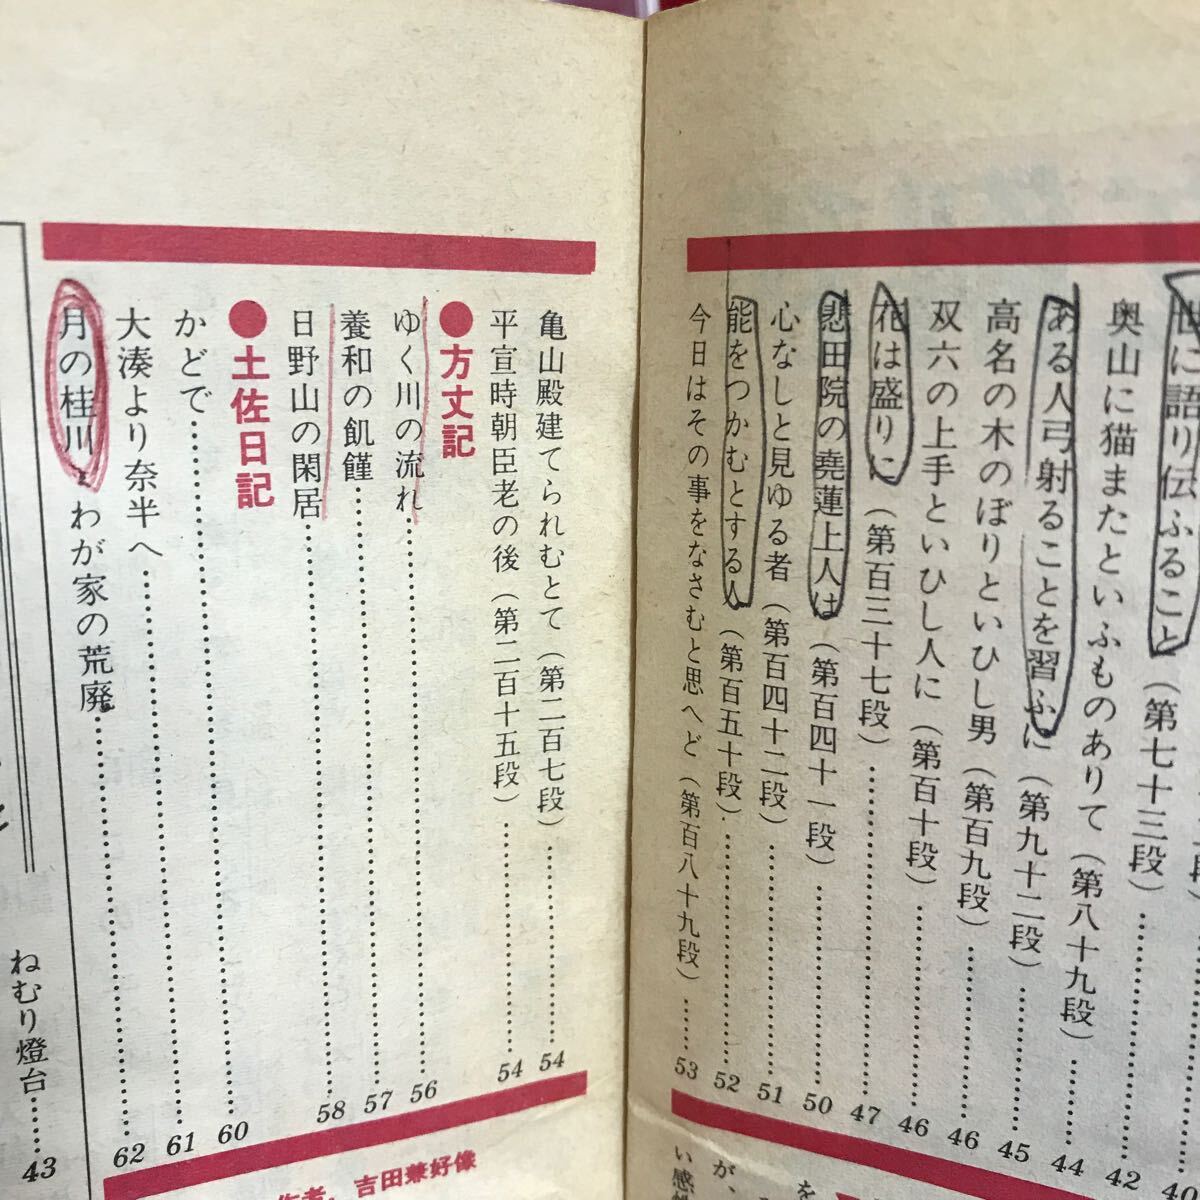 世に語り伝ふること（第七十三段）……42
奥山に猫またといふものありて（第八十九段）……44
ある人弓射ることを習ふに（第九十二段）……45
高名の木のぼりといひし男（第百九段）……46
双六の上手といひし人に（第百十段）……46
花は盛りに（第百三十七段）……47
悲田院の堯蓮上人は（第百四十一段）……50
心なしと見ゆる者（第百四十二段）……51
能をつかむとする人（第百五十段）……52
今日はその事をなさむと思へど（第百八十九段）……53
亀山殿建てられむとて（第二百七段）……54
平宣時朝臣老の後（第二百十五段）……54
●方丈記
ゆく川の流れ……56
養和の飢饉……57
日野山の閑居……58
●土佐日記
かどで……60
大湊より奈半へ……61
月の桂川とわが家の荒廃……62
ねむり燈台……43
吉田兼好像
40